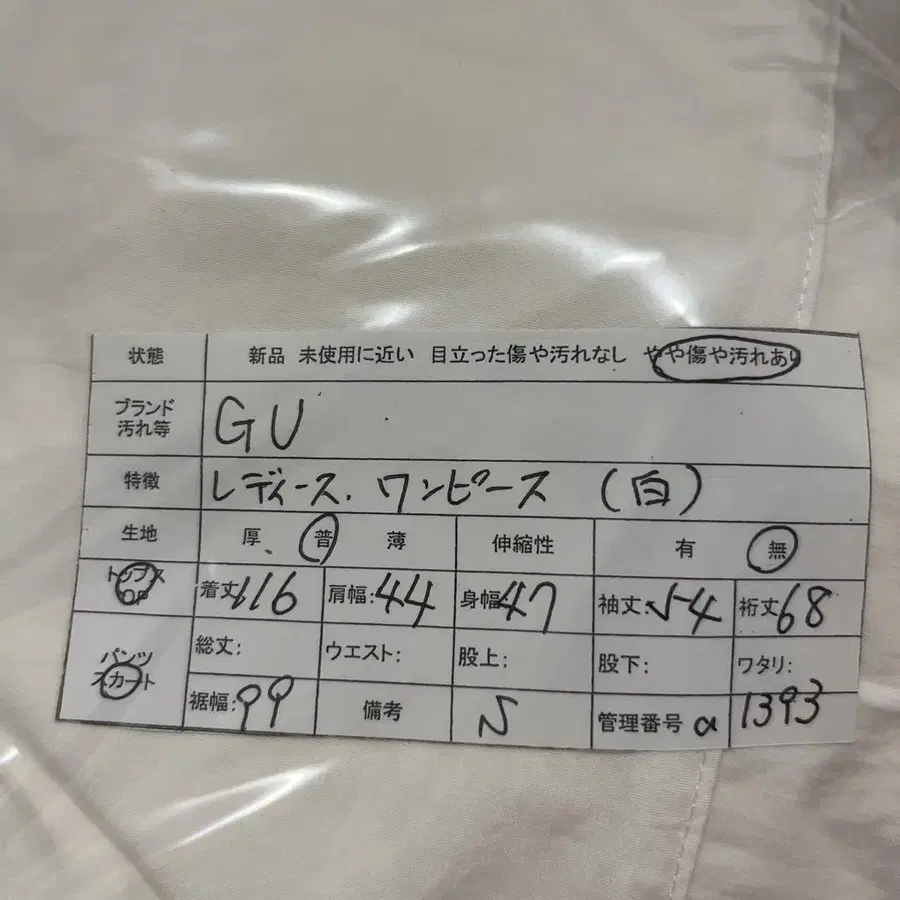 状態 新品 未使用に近い 目立った傷や汚れなし やや傷や汚れあり
ブランド 汚れ等 GU
特徴 レディース. ワンピース (白)
生地 厚 普 薄 伸縮性 有 無
トップス OP 着丈:116 肩幅:44 身幅:47 袖丈:54 裄丈:68
パンツ スカート 総丈: ウエスト: 股上: 股下: ワタリ:
裾幅:99 備考 S 管理番号 α 1393